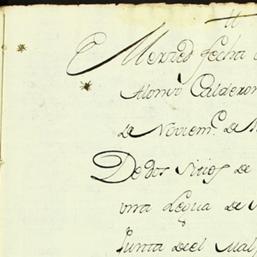 Merced fecha
Alonso Calderon
de Noviem.e de M
De dos Sitios de
una Legua de
Junta del Mal